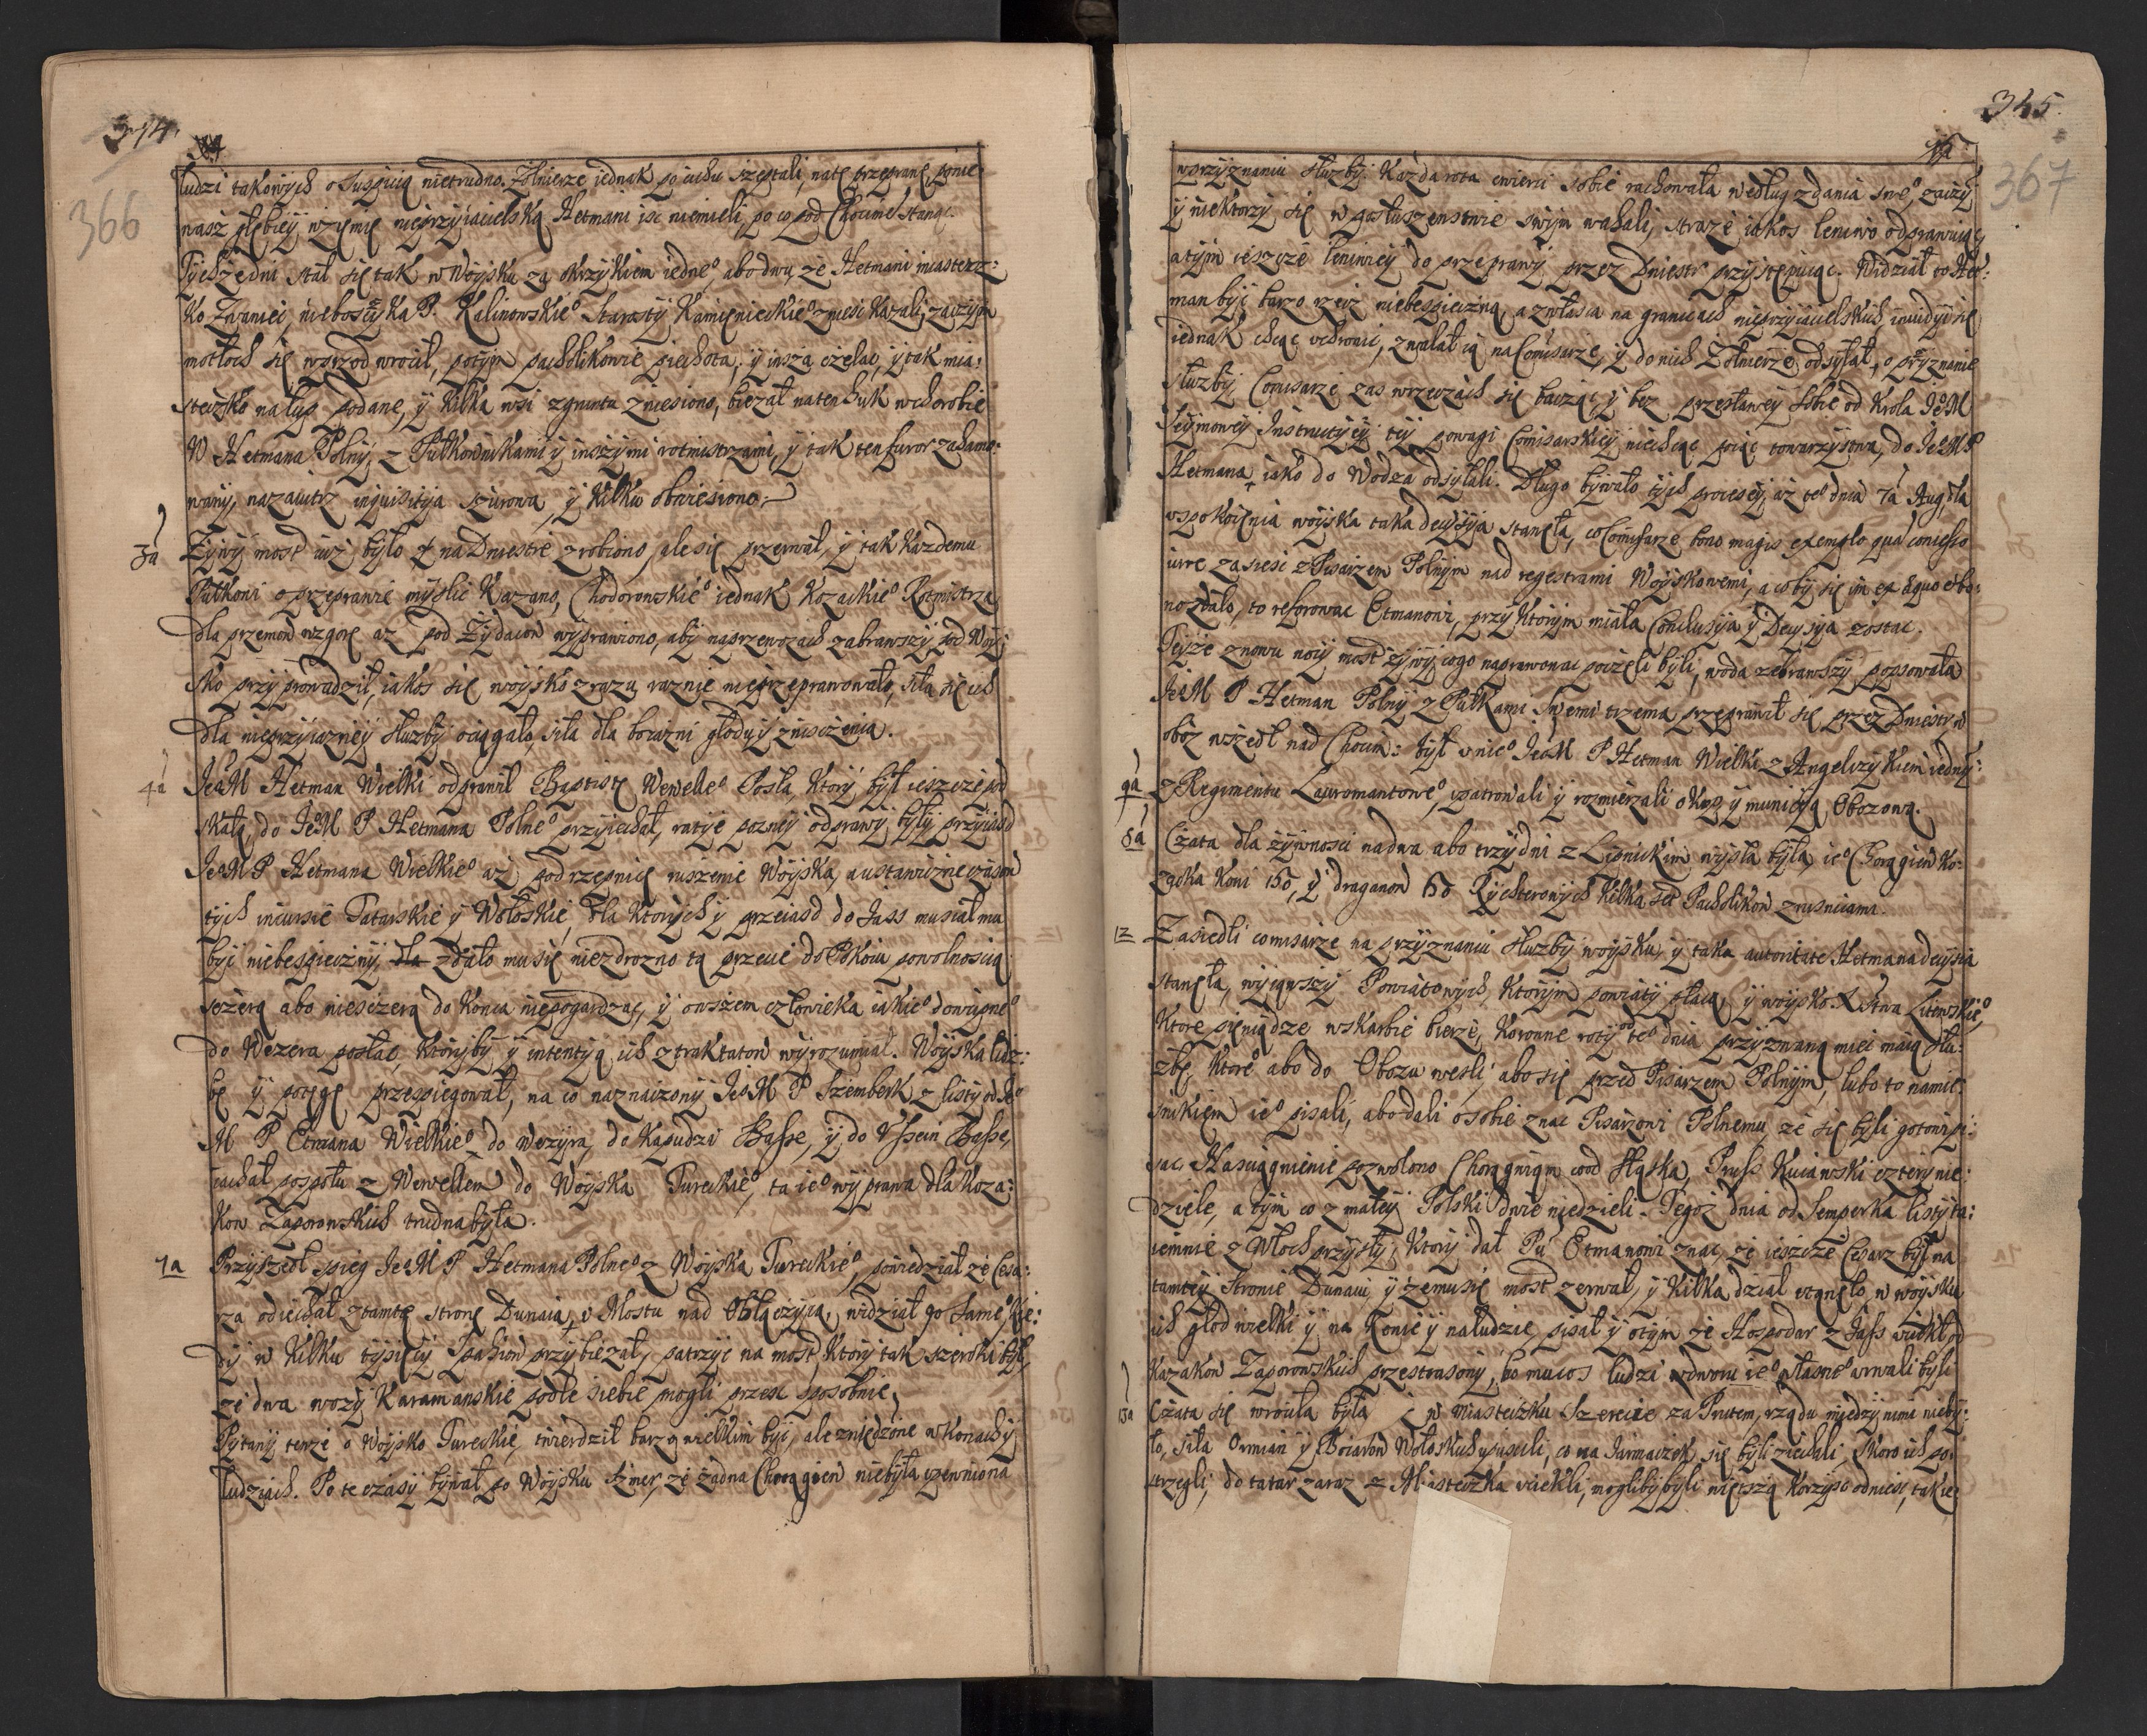 374.
366
ludzi takowych o suspicią nietrudno. Żołnierze iednak po cichu szeptali, na tę przeprawę, ponie
nasz głębiey w ziemię nieprzyiacielską Hetmani isc niemieli, po co pod Chocimē stanąc.
Tychże dni stał się tak w Woysku za okrzykiem iedne⁰, abo dwu, że Hetmani miastecz:
ko Zwaniec, nieboszczyka P. Kalinowskie⁰ Starosty Kamienieckie⁰ zniesc kazali, zaczym
motłoch się wprzod wrocił, potym pacholikowie piechota, y insza czelac, y tak mia:
steczko na łup podane, y kilka wsi z gruntu zniesiono, bieżał na ten huk w chorobie
W Hetmana Polny, z Pułkownikami y inszymi rotmistrzami, y tak ten furor zahamo:
wany, nazaiutrz inquisitya surowa, y kilku obwiesiono.
3a Zywy most iuż było na Dniestrē zrobiono, ale się przerwał, y tak każdemu
Pułkowi o przeprawie myslic kazano, Chodorowskie⁰ iednak Kozackie⁰ Rotmistrza
dla przemow wzgorę aż pod Żydacow wyprawiono, aby na przewozach zabrawszy, pod Woy:
sko przyprowadził, iakos się woysko zrazu raznie nieprzeprawowało, siła się ich
dla nieprzyiazney służby ociągało, siła dla boiazni głodu y zniszczenia.
4a Je⁰M Hetman Wielki odprawił Baptistę Wewelle⁰ Posła, ktory był ieszcze pod
skałą, do Je⁰M P Hetmana Polne⁰ przyiechał, ratye pozney odprawy były przyiasd
Je⁰M P Hetmana Wielkie⁰ aż pod rzepnicę ruszenie Woyska, a ustawiczne czasow
tych incursie Tatarskie y Wołoskie, dla ktorych y przeiasd do Jass musiał mu
byc niebespieczny, zdało mu się niezdrozno tą przecie do Pokoiu powolnoscią
szczerą abo nieszczerą do konca niepogardzac, y owszem człowieka iakie⁰ dowcipne⁰
do Wezera posłac, ktoryby y intentyą ich z traktatow wyrozumiał. Woyska licz:
bę y potęgę przespiegował, na co naznaczony Je⁰M P Szemberk z listy od Je⁰
M P Etmana Wielkie⁰ do Wezyra, do Kapudzi Basse, y do Ussein Basse,
iachał pospołu z Wewellem do Woyska Tureckie⁰, ta ie⁰ wyprawa dla Koza:
kow Zaporowskich trudna była.
7a Przyszedł spieg Je⁰M P Hetmana Polne⁰ z Woyska Tureckie⁰, powiedział że Cesa:
rza odiechał z tamtę stronę Dunaia, u Mostu nad Obłączyią, widział go same⁰, kie:
dy w kilku tysięcy Spahiow przybieżał, patrzyc na most ktory tak szeroki był,
że dwa wozy Karamanskie podle siebie mogli przesc sposobnie,
Pytany tenże o Woysko Tureckie, twierdził barzo wielkim byc, ale znędzone w Koniach y
ludziach. Po te czasy bywał po Woysku szmer, że żadna Chorągiew niebyła upewniona
345.
367
w przyznaniu służby. Każda rota cwierci sobie rachowała według zdania swe⁰, zaczym
y niektorzy się w posłuszenstwie swym wahali, straże iakos leniwo odprawuiąc,
a tym ieszcze leniwiey do przeprawy przez Dniestr przystępuiąc. Widział to Het:
man byc barzo rzecz niebespieczną, a zwłascza na granicach nieprzyiacielskich, invidyi się
iednak chcąc uchronic, zwalał ią na Comisarze, y do nich Żołnierze odsyłał, o przyznanie
służby, Comisarze zas w rzeczach się bacząc, y bez przesławey sobie od Krola Je⁰M
Seymowey Instructyey tey powagi Comisarskiey niechcąc wziąc towarzystwa, do Je⁰M P
Hetmana iako do Wodza odsyłali. Długo bywało tych procesey, aż te⁰ dnia 7a Aug, dla
uspokoienia woyska taka decysyia stanęła, co Comisarze bono magis exemplo quā concesso
iure zasiesc z Pisarzem Polnym nad regestrami Woyskowemi, a coby się im ex aequo et bo:
no zdało, to referowac Etmanowi, przy ktorym miała Conclusya y Decysya zostac.
Teyże znowu nocy most żywy, co go naprawowac poczęli byli, woda zebrawszy popsowała
Je⁰M P Hetman Polny z Pułkami swemi trzema przeprawił się przez Dniestr, w
oboz wszedł nad Chocim: był u nie⁰ Je⁰M P Hetman Wielki z Angelczykiem iedny:
9a z Regimentu Lauromantowe⁰, upatrowali y rozmierzali okop y municyą Obozową.
8a Czata dla żywnosci na dwa abo trzy dni z Lipnickim wyszła była, ie⁰ Chorągiew ko:
zacka koni 150, y draganow 60 Rychterowych kilka set Pacholikow z rusnicami.
12 Zasiedli comisarze na przyznaniu służby woysku, y taka autoritate Hetmana decysia
stanęła, wyiąwszy Powiatowych, ktorym powiaty płacą, y woysko X Stwa Litewskie⁰,
ktore pieniądze w skarbie bierze, Koronne roty od te⁰ dnia przyznaną miec maią słu:
żbę, ktore abo do Obozu weszli, abo się przed Pisarzem Polnym, lubo to namie:
snikiem ie⁰ pisali, abo dali o sobie znac Pisarzowi Polnemu, że się byli gotowi pi:
sac, Na sciągnienie pozwolono Chorągwiom co od Sląska, Pruss Kuiawski cztery nie:
dziele, a tym co z małey Polski dwie niedzieli. Tegoż dnia od Semperka listy ta:
iemnie z Włoch przyszły, ktory dał Pu Etmanowi znac, że ieszcze Cesarz był na
tamtey stronie Dunaiu, y że mu się most zerwał, y kilka dział utonęło, w woysku
ich głod wielki y na konie y na ludzie, pisał y o tym że Hospodar z Jass uciekł od
Kazakow Zaporowskich przestraszony, bo mu cos ludzi z dworu ie⁰ własne⁰ urwali byli
13a Czata się wrocila była, w miasteczku Szerecie za Prutem, rządu między nimi nieby:
ło, siła Ormian y Bocarow Wołoskich upuscili, co na Jarmaczek się byli ziechali, skoro ich po:
strzegli, do tatar zaraz z Miasteczka uciekli, mogliby byli większą korzysc odniesc, takie